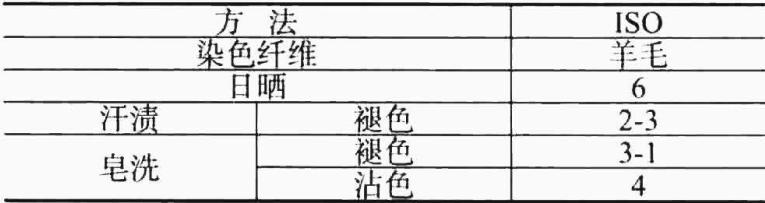 方 法 ISO
染色纤维 羊毛
日晒 6
汗渍 褪色 2-3
皂洗 褪色 3-1
沾色 4